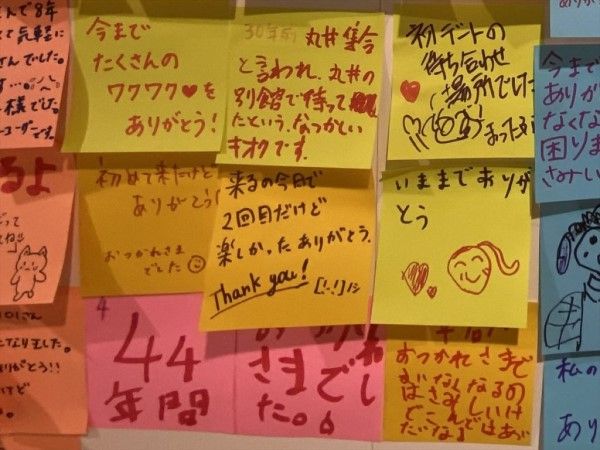 んで8年
て気軽に
んでした。
様でした。
今まで
たくさんの
ワクワク♥を
ありがとう!
30年前 丸井集合
と言われ、丸井の
別館で待って
たという、なつかしい
キオクです。
初デートの
待ち合わせ
場所でした
今まで
ありが
なくな
困りま
さみしい
るよ
初めて来たけど
ありがとう!
おつかれさま
でした
来るの今日で
2回目だけど
楽しかったありがとう。
Thank you!
いままでありが
とう
になりました。
りがとう!!
けど
4
44
年間
さまでし
た。
おつかれさまで
がなくなるの
はさみしいけ
私の
あり